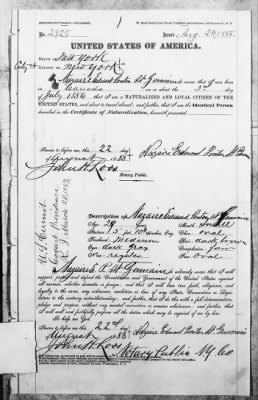 No. 2325
Issued Aug. 24 1885.
UNITED STATES OF AMERICA.
STATE OF New York
City
COUNTY OF New York
I, Nazaire Edward Ponton St Germain do swear that I was born
in Canada on the 3rd day
of July 1856 that I am a NATURALIZED AND LOYAL CITIZEN OF THE
UNITED STATES, and about to travel abroad; and further, that I am the Identical Person
described in the Certificate of Naturalization, herewith presented.
Sworn to before me, this 22 day
of August 1885
John H. Loos
Notary Public.
Nazaire Edward Ponton St Germain
U.S. Circuit
Court, Providence
R.I.
Description of Nazaire Edward Ponton St Germain
Age: 29
Mouth: small
Stature: 5 ft
Chin: oval
Forehead: medium
Hair: dark brown
Eyes: dark gray
Complexion: fair
Nose: regular
Face: oval
I, Nazaire P. St Germain do solemnly swear that I will
support, protect, and defend the Constitution and Government of the United States against
all enemies, whether domestic or foreign; and that I will bear true faith, allegiance, and
loyalty to the same, any ordinance, resolution or law of any State, Convention or Legislature
to the contrary notwithstanding; and further, that I do this with a full determination,
pledge and purpose, without any mental reservation or evasion whatsoever; and further, that
I will well and faithfully perform all the duties which may be required of me by law:
So help me God.
Sworn to before me, this 22nd day
of August 1885
Nazaire Edward Ponton St Germain
John H. Loos
Notary Public N.Y. Co